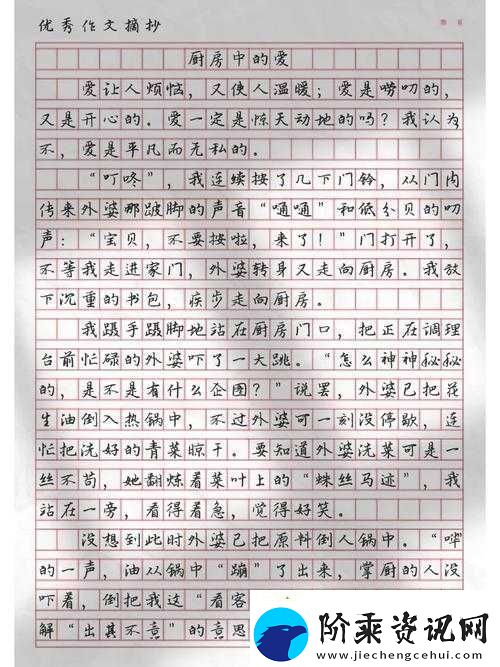 优秀作文摘抄
厨房中的爱
爱让人烦恼，又使人温暖；爱是唠叨的，
又是开心的。爱一定是惊天动地的吗？我认为
不，爱是平凡而无私的。
“叮咚”，我连续按了几下门铃，从门内
传来外婆那跛脚的声音“嗵嗵”和低分贝的叨
声：“宝贝，不要按啦，来了！”门打开了，
不等我走进家门，外婆转身又走向厨房。我放
下沉重的书包，疾步走向厨房。
我蹑手蹑脚地站在厨房门口，把正在调理
台前忙碌的外婆吓了一大跳。“怎么神神秘秘
的，是不是有什么企图？”说罢，外婆已把花
生油倒入热锅中，不过外婆可一刻没停歇，连
忙把洗好的青菜晾干。要知道外婆洗菜可是一
丝不苟，她翻炼着菜叶上的“蛛丝马迹”，我
站在一旁，看得着急，觉得好笑。
没想到此时外婆已把原料倒人锅中。“哗”
的一声，油从锅中“蹦”了出来，掌厨的人没
吓着，倒把我这“看客
解“出其不意”的意思
阶乘资讯网
www.jiechengcehui.com